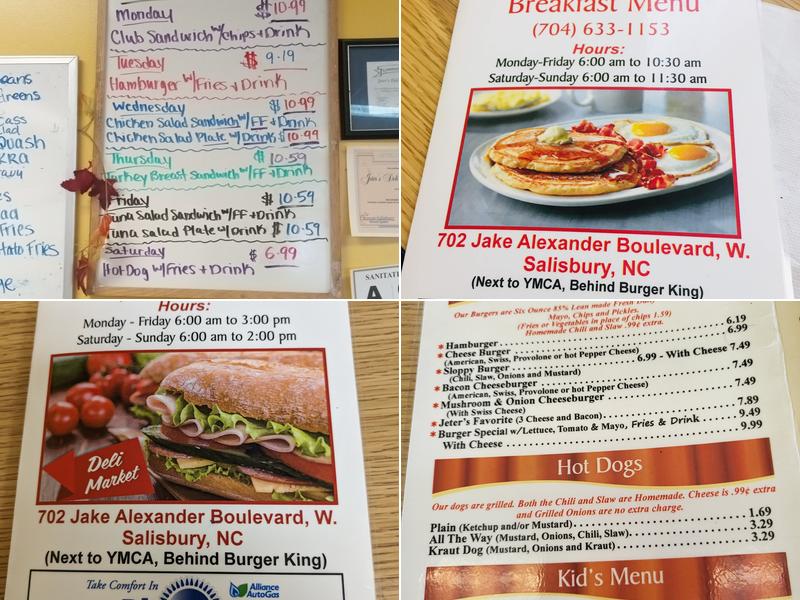 Monday $10.99
Club Sandwich w/Chips + Drink
Tuesday $ 9.19
Hamburger w/Fries + Drink
Wednesday $10.99
Chicken Salad Sandwich w/FF + Drink
Chicken Salad Plate w/Drink $10.99
Thursday $10.59
Turkey Breast Sandwich w/FF + Drink
Friday $10.59
Tuna Salad Sandwich w/FF + Drink
Tuna Salad Plate w/Drink $10.59
Saturday $6.99
Hot Dog w/Fries + Drink
Fries
Breakfast Menu
(704) 633-1153
Hours:
Monday-Friday 6:00 am to 10:30 am
Saturday-Sunday 6:00 am to 11:30 am
702 Jake Alexander Boulevard, W.
Salisbury, NC
(Next to YMCA, Behind Burger King)
Hours:
Monday - Friday 6:00 am to 3:00 pm
Saturday - Sunday 6:00 am to 2:00 pm
Deli
Market
702 Jake Alexander Boulevard, W.
Salisbury, NC
(Next to YMCA, Behind Burger King)
Take Comfort In
Alliance
AutoGas
Our Burgers are Six Ounce 85% Lean made Fresh Daily
Mayo, Chips and Pickles.
(Fries or Vegetables in place of chips 1.59)
Homemade Chili and Slaw .99¢ extra.
* Hamburger 6.19
* Cheese Burger 6.99
(American, Swiss, Provolone or hot Pepper Cheese)
* Sloppy Burger 6.99 - With Cheese 7.49
(Chili, Slaw, Onions and Mustard)
* Bacon Cheeseburger 7.49
(American, Swiss, Provolone or hot Pepper Cheese)
* Mushroom & Onion Cheeseburger 7.49
(With Swiss Cheese)
* Jeter's Favorite (3 Cheese and Bacon) 7.89
* Burger Special w/Lettuce, Tomato & Mayo, Fries & Drink 9.49
With Cheese 9.99
Hot Dogs
Our dogs are grilled. Both the Chili and Slaw are Homemade. Cheese is .99¢ extra
and Grilled Onions are no extra charge.
Plain (Ketchup and/or Mustard) 1.69
All The Way (Mustard, Onions, Chili, Slaw) 3.29
Kraut Dog (Mustard, Onions and Kraut) 3.29
Kid's Menu